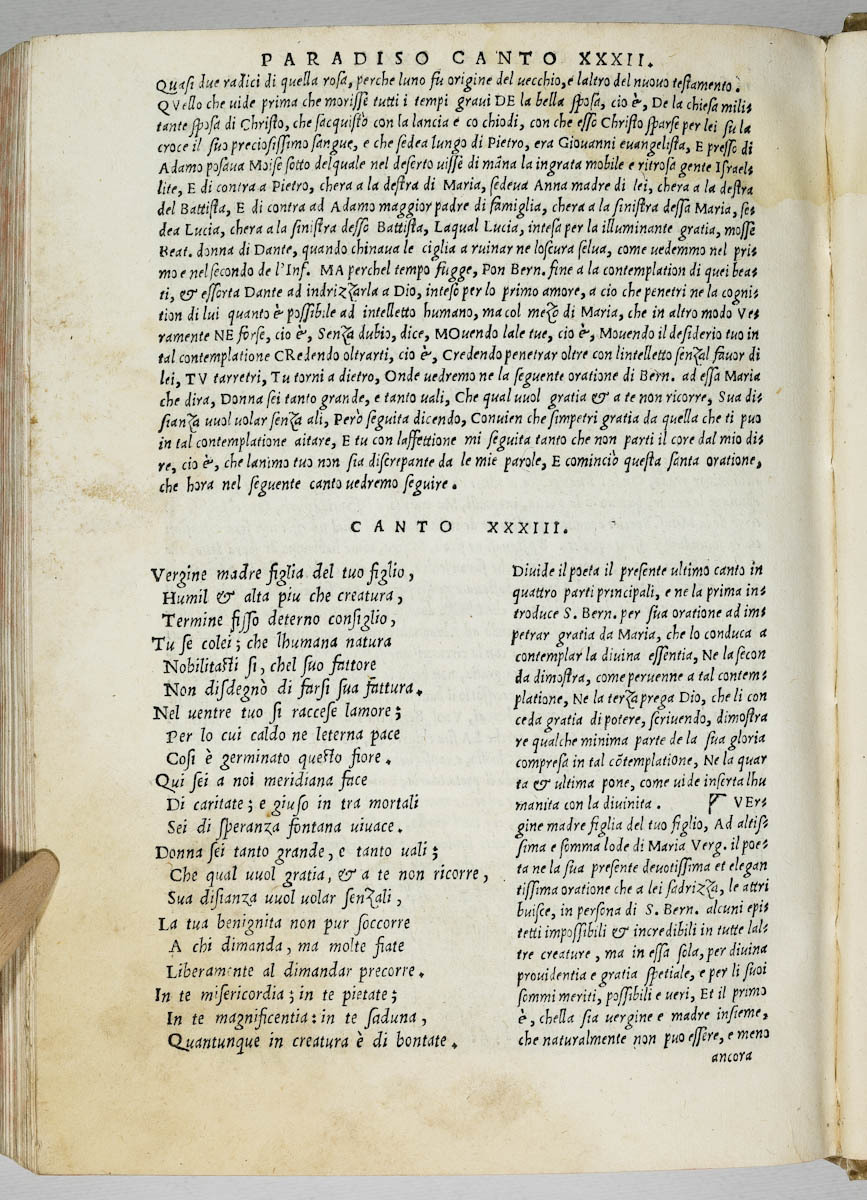 PARADISO CANTO XXXII.
Quasi due radici di quella rosa, perche luno fu origine del uecchio, e laltro del nuouo testamento.
QVello che uide prima che morisse tutti i tempi graui DE la bella sposa, cio è, De la chiesa mili-
tante sposa di Christo, che sacquisto con la lancia e co chiodi, con che esso Christo sparse per lei su la
croce il suo preciosissimo sangue, e che sedea lungo di Pietro, era Giouanni euangelista, E presso di
Adamo posaua Moise sotto delquale nel deserto uisse di mãna la ingrata mobile e ritrosa gente Israel-
lite, E di contra a Pietro, chera a la destra di Maria, sedeua Anna madre di lei, chera a la destra
del Battista, E di contra ad Adamo maggior padre di famiglia, chera a la sinistra dessa Maria, se-
dea Lucia, chera a la sinistra desso Battista, Laqual Lucia, intesa per la illuminante gratia, mosse
Beat. donna di Dante, quando chinaua le ciglia a ruinar ne loscura selua, come uedemmo nel pri-
mo e nel secondo de l'Inf. MA perchel tempo fugge, Pon Bern. fine a la contemplation di quei bea-
ti, & essorta Dante ad indrizzarla a Dio, inteso per lo primo amore, a cio che penetri ne la cogni-
tion di lui quanto è possibile ad intelletto humano, ma col mezo di Maria, che in altro modo Ve-
ramente NE forse, cio è, Senza dubio, dice, MOuendo lale tue, cio è, Mouendo il desiderio tuo in
tal contemplatione CRedendo oltrarti, cio è, Credendo penetrar oltre con lintelletto senzal fauor di
lei, TV tarretri, Tu torni a dietro, Onde uedremo ne la seguente oratione di Bern. ad essa Maria
che dira, Donna sei tanto grande, e tanto uali, Che qual uuol gratia & a te non ricorre, Sua di-
sianza uuol uolar senza ali, Però seguita dicendo, Conuien che simpetri gratia da quella che ti puo
in tal contemplatione aitare, E tu con laffettione mi seguita tanto che non parti il core dal mio di-
re, cio è, che lanimo tuo non sia discrepante da le mie parole, E cominciò questa santa oratione,
che hora nel seguente canto uedremo seguire.
CANTO XXXIII.
Vergine madre figlia del tuo figlio,
Humil & alta piu che creatura,
Termine fisso deterno consiglio,
Tu se colei; che lhumana natura
Nobilitasti si, chel suo fattore
Non disdegnò di farsi sua fattura.
Nel uentre tuo si raccese lamore;
Per lo cui caldo ne leterna pace
Cosi è germinato questo fiore.
Qui sei a noi meridiana face
Di caritate; e giuso in tra mortali
Sei di speranza fontana uiuace.
Donna sei tanto grande, e tanto uali;
Che qual uuol gratia, & a te non ricorre,
Sua disianza uuol uolar senzali,
La tua benignita non pur soccorre
A chi dimanda, ma molte fiate
Liberamente al dimandar precorre.
In te misericordia; in te pietate;
In te magnificentia: in te saduna,
Quantunque in creatura è di bontate.
Diuide il poeta il presente ultimo canto in
quattro parti principali, e ne la prima in-
troduce S. Bern. per sua oratione ad im-
petrar gratia da Maria, che lo conduca a
contemplar la diuina essentia, Ne la secon
da dimostra, come peruenne a tal contem-
platione, Ne la terza prega Dio, che li con
ceda gratia di potere, scriuendo, dimostra
re qualche minima parte de la sua gloria
compresa in tal cõtemplatione, Ne la quar
ta & ultima pone, come uide inserta lhu
manita con la diuinita. VEr-
gine madre figlia del tuo figlio, Ad altis-
sima e somma lode di Maria Verg. il poe-
ta ne la sua presente deuotissima et elegan
tissima oratione che a lei sadrizza, le attri
buisce, in persona di S. Bern. alcuni epi-
tetti impossibili & incredibili in tutte lal-
tre creature, ma in essa sola, per diuina
prouidentia e gratia spetiale, e per li suoi
sommi meriti, possibili e ueri, Et il primo
è, chella sia uergine e madre insieme,
che naturalmente non puo essere, e meno
ancora